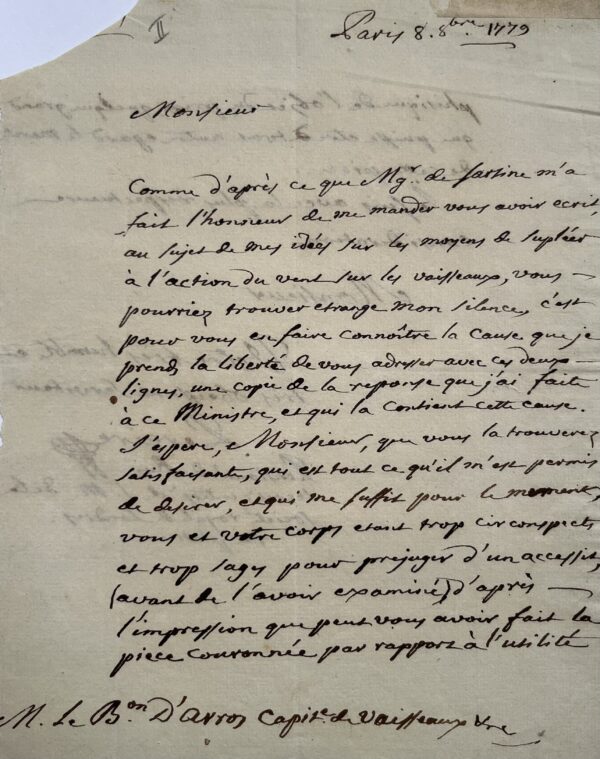 II
Paris 8. 8bre. 1779
Monsieur
Comme d'après ce que Mgr. de Sartine m'a
fait l'honneur de me mander vous avoir ecrit,
au sujet de mes idées sur les moyens de supléer
à l'action du vent sur les vaisseaux, vous —
pourriez trouver etrange mon silence, c'est
pour vous en faire connoître la cause que je
prends la liberté de vous adresser avec ces deux —
lignes, une copie de la reponse que j'ai faite
à ce Ministre, et qui la contient cette cause.
J'espere, Monsieur, que vous la trouverez
satisfaisante, qui est tout ce qu'il m'est permis
de desirer, et qui me suffit pour le moment,
vous et votre corps etant trop circonspects
et trop sages pour prejuger d'un accessit,
(avant de l'avoir examiné) d'après —
l'impression que peut vous avoir fait la
piece couronnée par rapport à l'utilité
M. Le Bon. D'Arros Capite. de vaisseaux &re